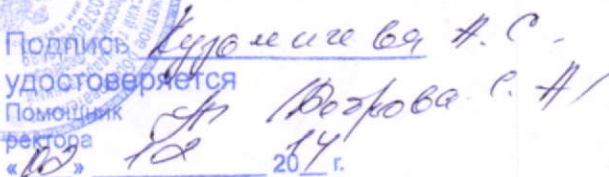 Подпись Кузьмичева А. С.
удостоверяется
Помощник
ректора Петрова С. А.
«02» 12 2014 г.